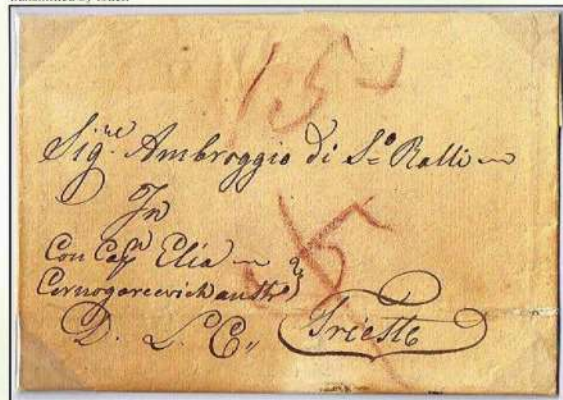 15
Sig.re Ambroggio di S.o Ralli
In
Con Cap.n Elia
Cernogorcevich
D. L. C.
Trieste